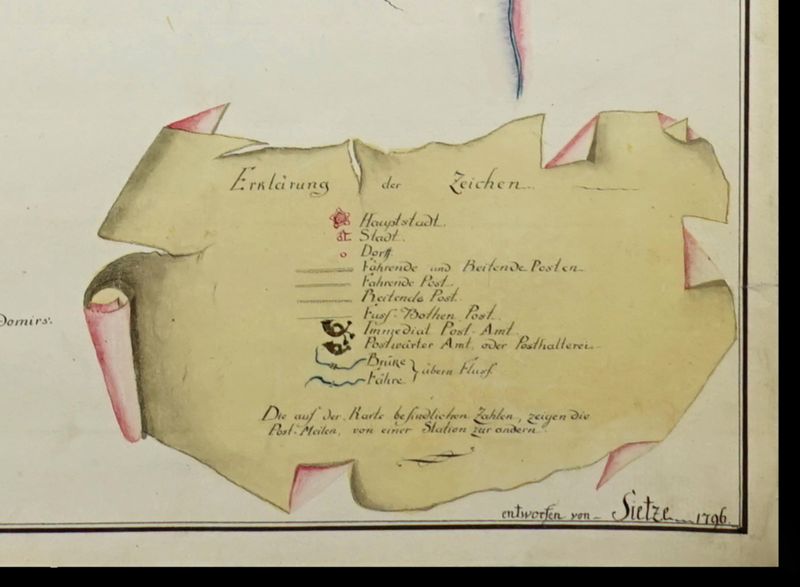 Erklärung der Zeichen.
Hauptstadt.
Stadt.
Dorff.
Fahrende und Reitende Posten.
Fahrende Post.
Reitende Post.
Fuss-Bothen Post.
Immediat Post-Amt.
Postwärter Amt, oder Posthalterei.
Brüke
Fähre } übern Fluss.
Die auf der Karte befindlichen Zahlen, zeigen die
Post-Meilen, von einer Station zur andern.
Domirs.
entworfen von Sietze 1796.